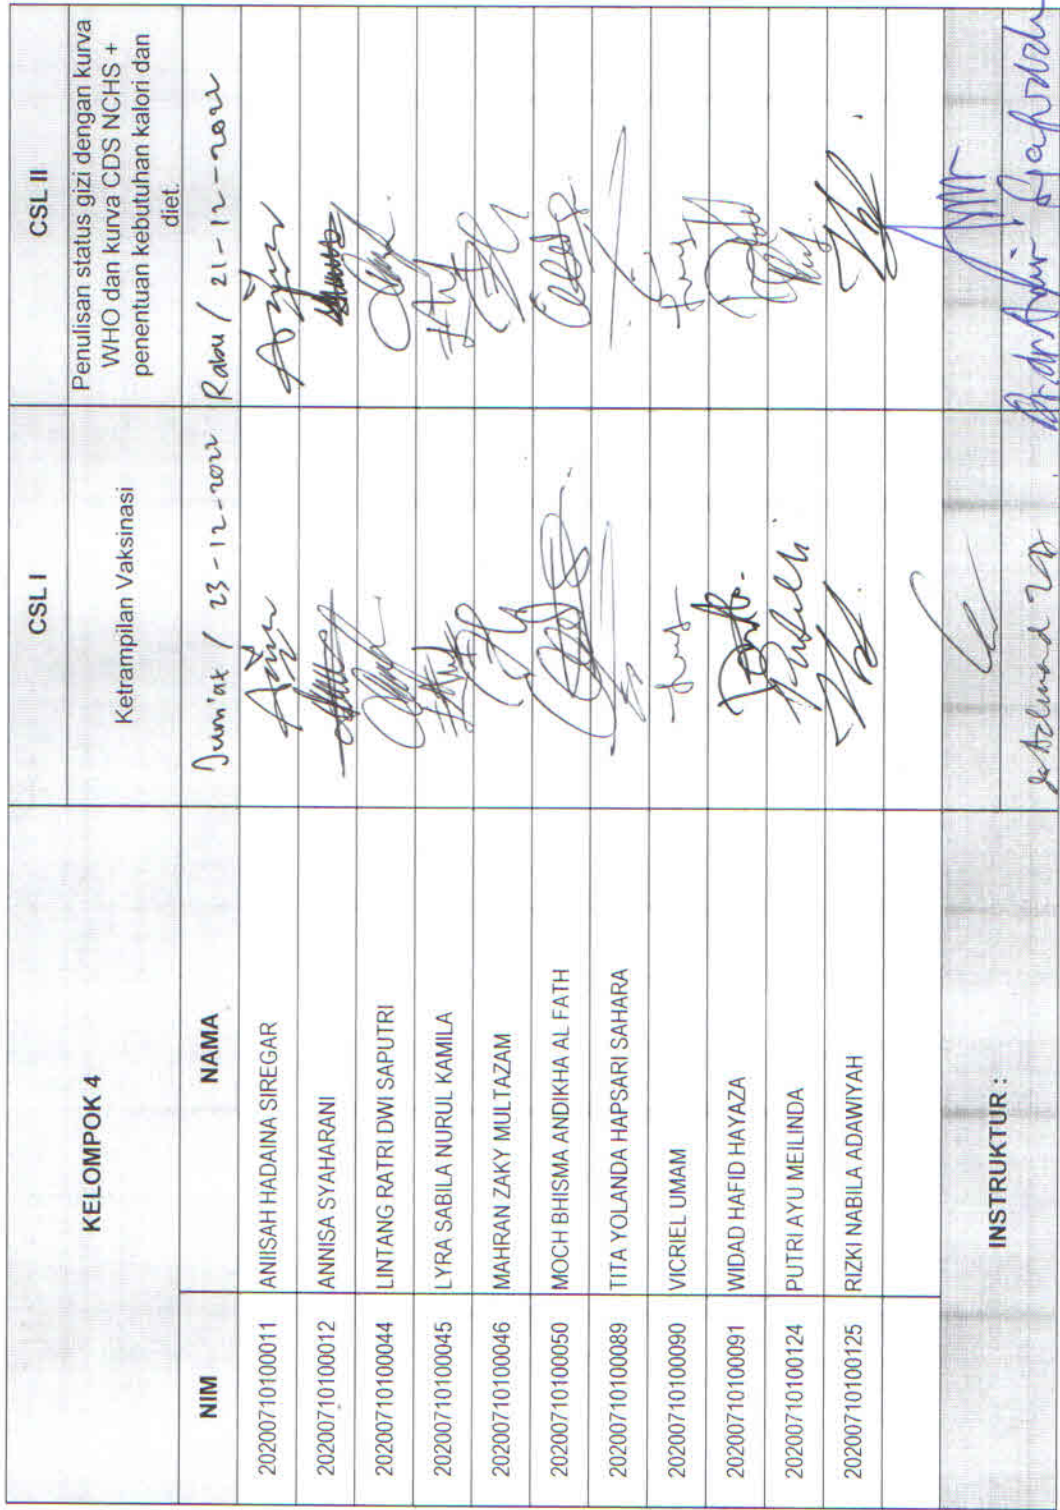 KELOMPOK 4
CSL I
CSL II
Ketrampilan Vaksinasi
Penulisan status gizi dengan kurva
WHO dan kurva CDS NCHS +
penentuan kebutuhan kalori dan
diet.
NIM NAMA
Jum'at / 23-12-2022
Rabu / 21-12-2022
2020071010​0011 ANIISAH HADAINA SIREGAR
20200710100012 ANNISA SYAHARANI
20200710100044 LINTANG RATRI DWI SAPUTRI
20200710100045 LYRA SABILA NURUL KAMILA
20200710100046 MAHRAN ZAKY MULTAZAM
20200710100050 MOCH BHISMA ANDIKHA AL FATH
20200710100089 TITA YOLANDA HAPSARI SAHARA
20200710100090 VICRIEL UMAM
20200710100091 WIDAD HAFID HAYAZA
20200710100124 PUTRI AYU MEILINDA
20200710100125 RIZKI NABILA ADAWIYAH
INSTRUKTUR :